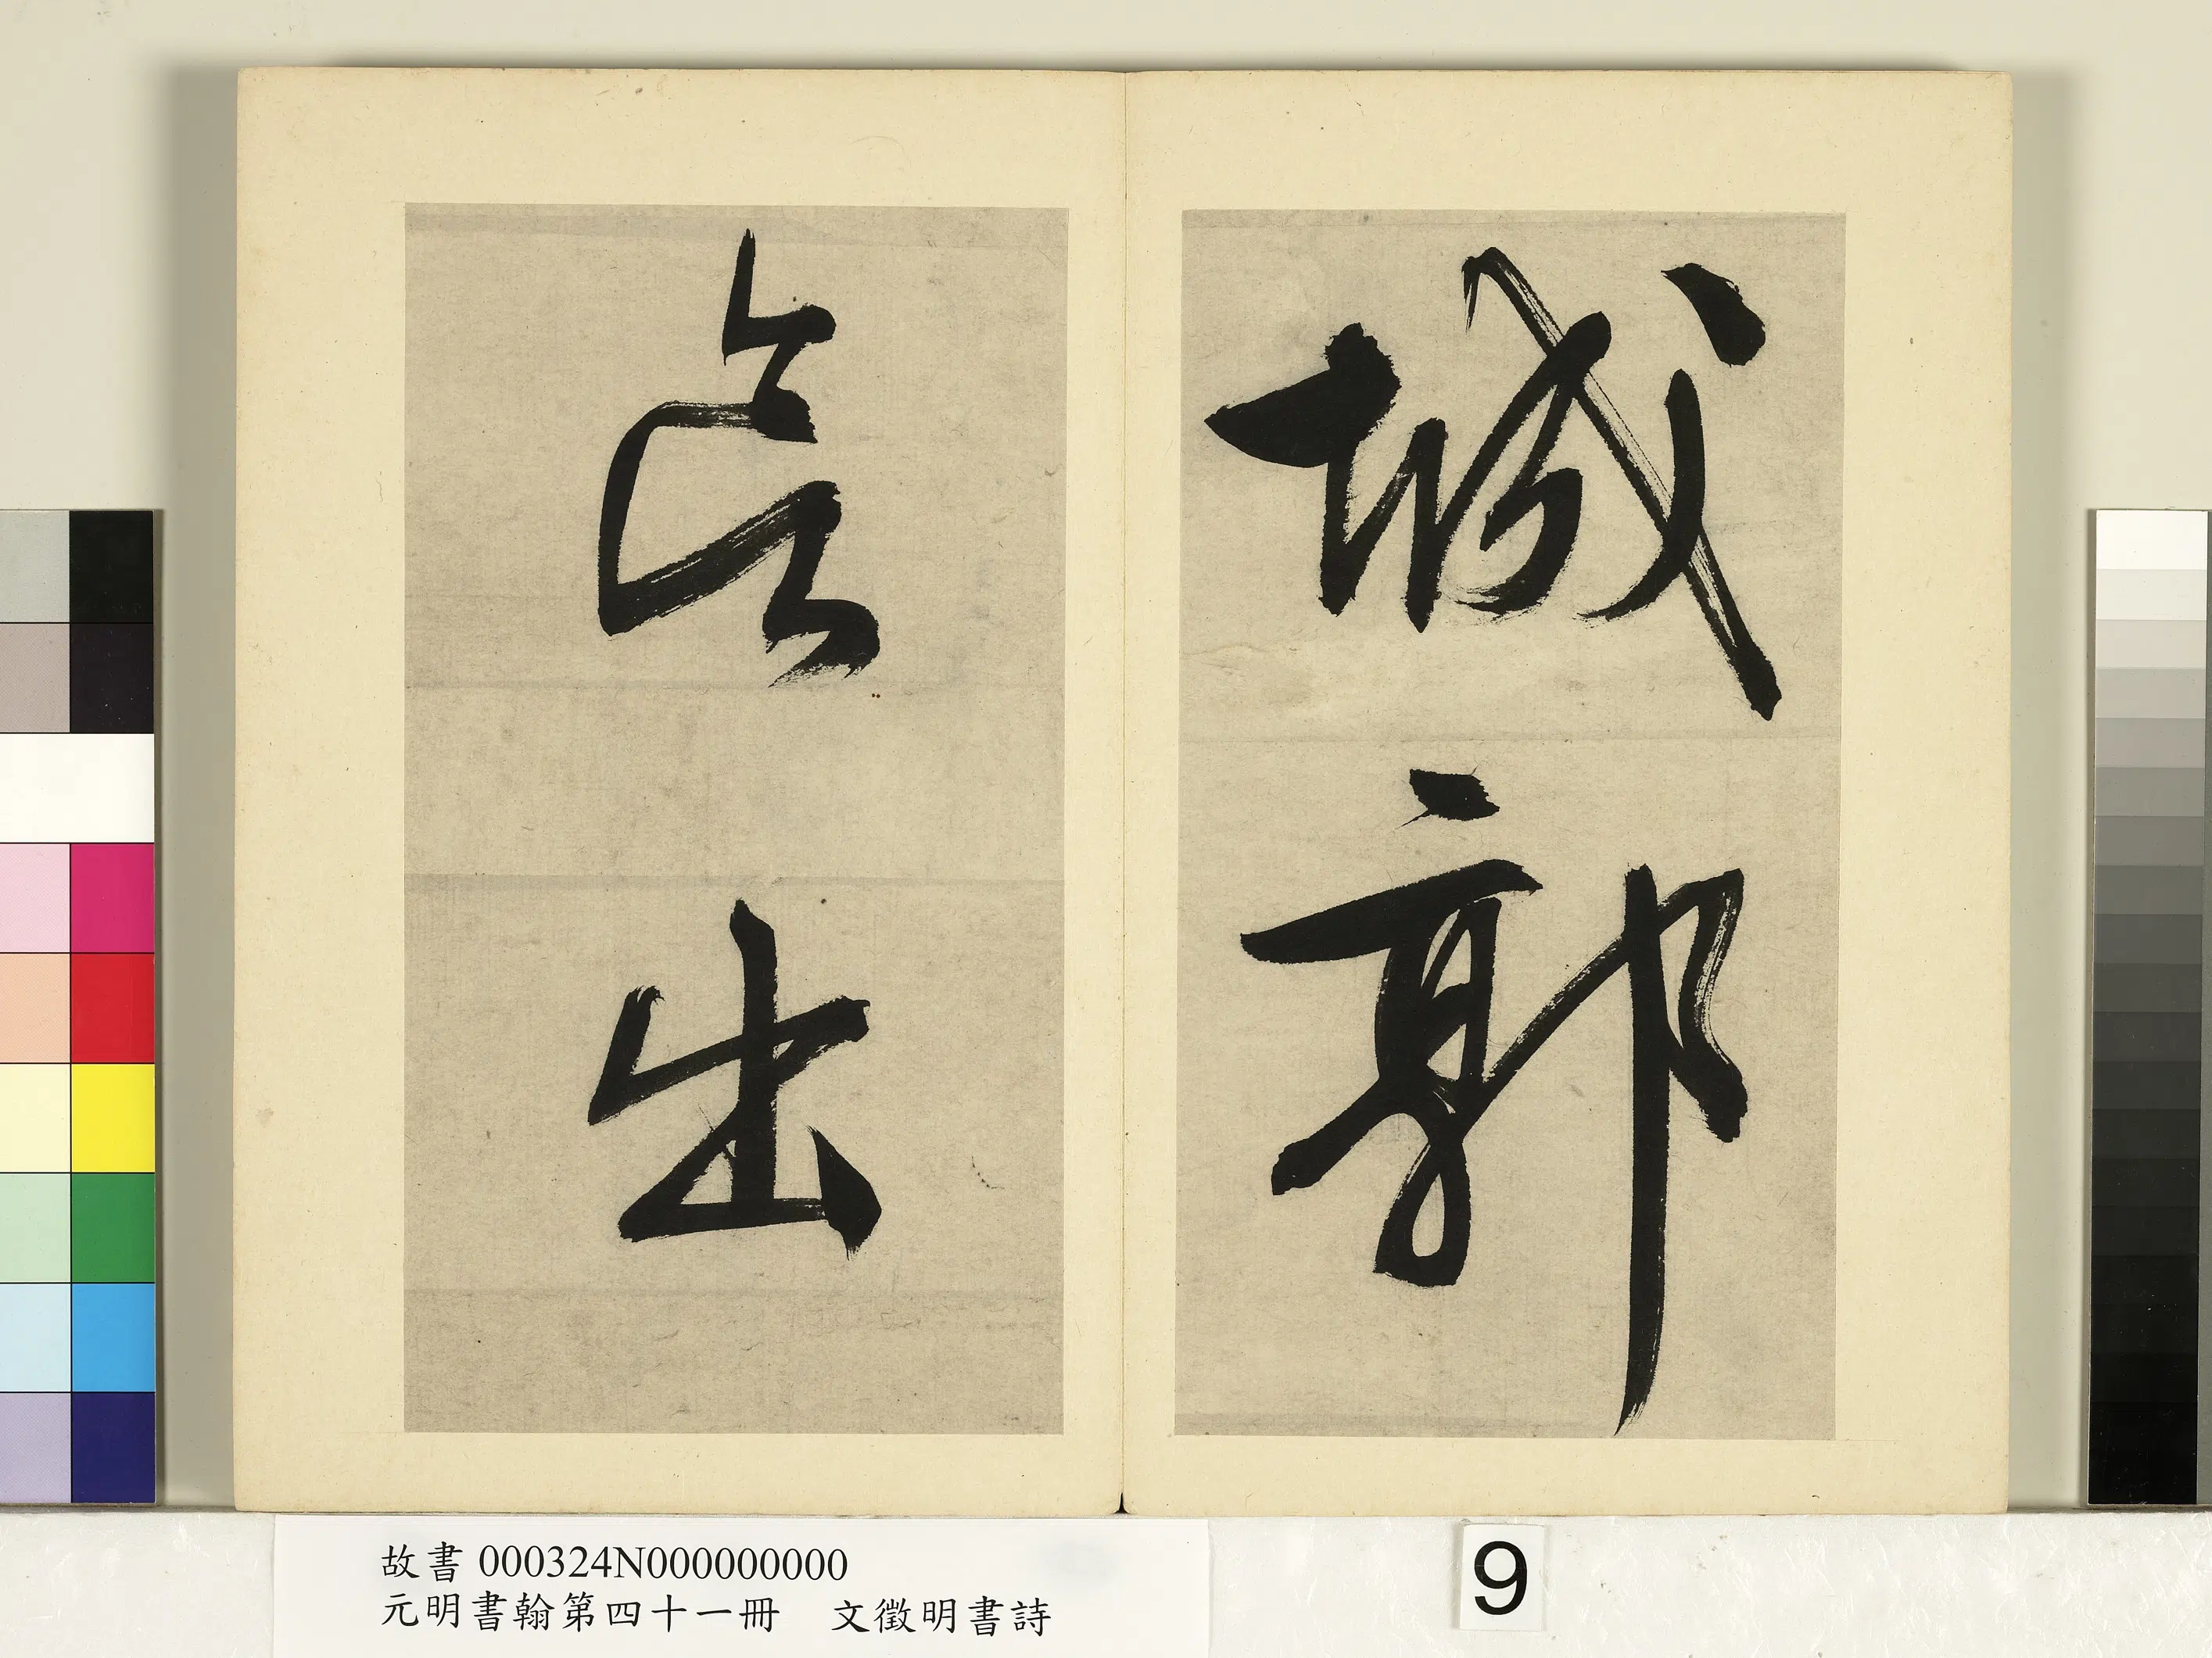 城郭
出
故書 000324N000000000
元明書翰第四十一冊　文徵明書詩
9